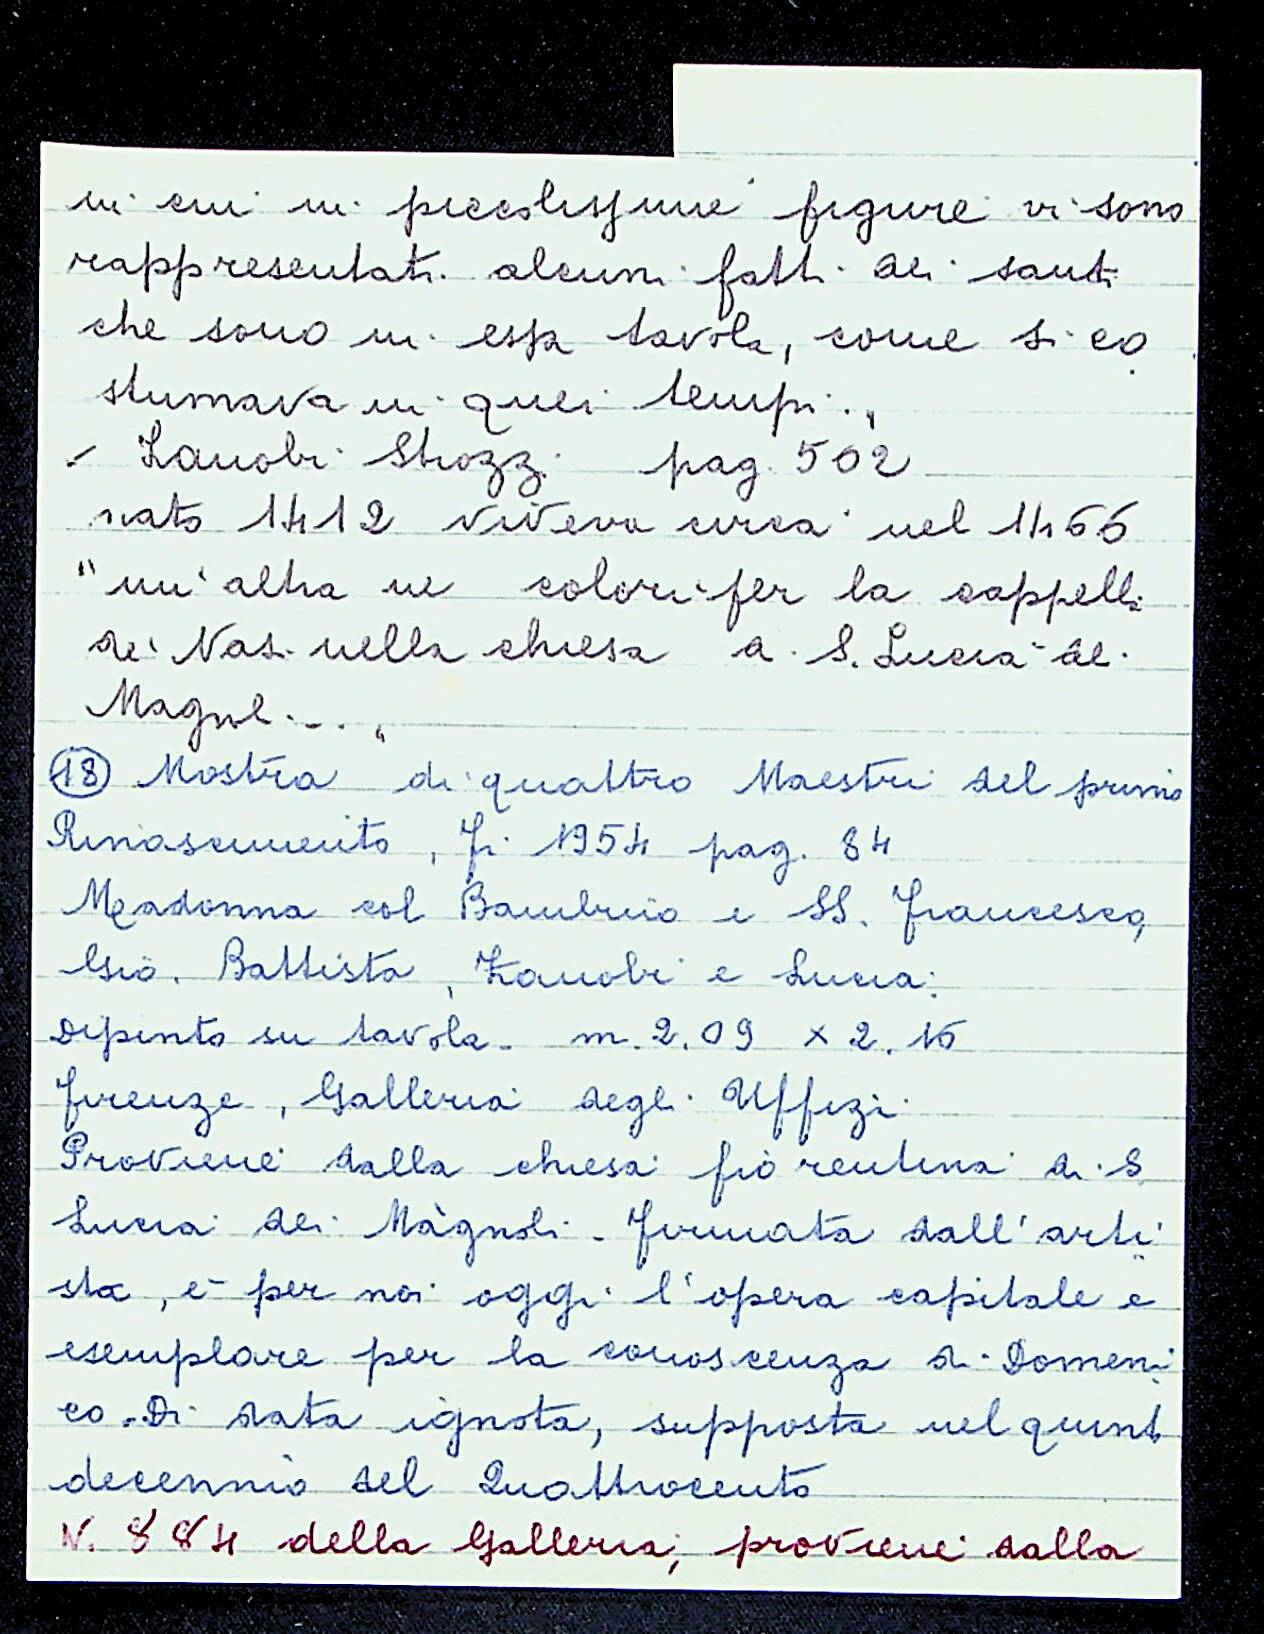 in cui in piccolissime figure vi sono
rappresentati alcuni fatti dei santi
che sono in essa tavola, come si co
stumava in quei tempi.„
- Zanobi Strozzi pag. 502
nato 1412 viveva circa nel 1466
"un'altra ne colorì per la cappella
de' Nasi nella chiesa di S. Lucia de'
Magnoli..."
(18) Mostra di quattro Maestri del primo
Rinascimento, Fi 1954 pag. 84
Madonna col Bambino e SS. Francesco,
Gio. Battista, Zanobi e Lucia.
Dipinto su tavola. m. 2.09 x 2.16
Firenze, Galleria degli Uffizi.
Proviene dalla chiesa fiorentina di S.
Lucia dei Màgnoli. Firmata dall'arti
sta, è per noi oggi l'opera capitale e
esemplare per la conoscenza di Domeni
co. Di data ignota, supposta nel quint
decennio del Quattrocento
N. 884 della Galleria, proviene dalla